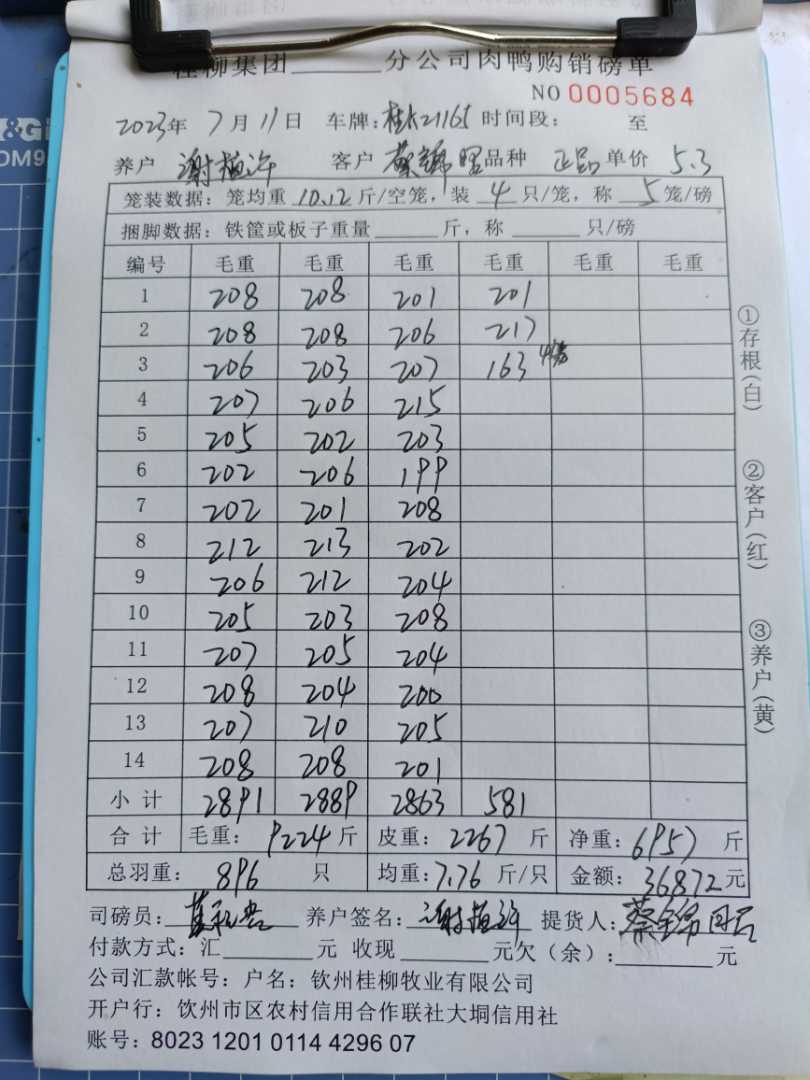 桂柳集团______分公司肉鸭购销磅单
NO 0005684
2023年 7月 11日 车牌:桂K21165 时间段: 至
养户 谢植许 客户 蔡锦 品种 正品 单价 5.3
笼装数据:笼均重 10.12 斤/空笼,装 4 只/笼,称 5 笼/磅
捆脚数据:铁筐或板子重量______斤,称______只/磅
编号 毛重 毛重 毛重 毛重 毛重 毛重
1 208 208 201 201
2 208 208 206 217
3 206 203 207 163
4 207 206 215
5 205 202 203
6 202 206 199
7 202 201 208
8 212 213 202
9 206 212 204
10 205 203 208
11 207 205 204
12 208 204 200
13 207 210 205
14 208 208 201
小计 2891 2889 2863 581
合计 毛重: 9224 斤 皮重: 2267 斤 净重: 6957 斤
总羽重: 896 只 均重: 7.76 斤/只 金额: 36872 元
司磅员: 养户签名: 谢植许 提货人: 蔡锦
付款方式:汇______元 收现______元欠(余):______元
公司汇款帐号:户名:钦州桂柳牧业有限公司
开户行:钦州市区农村信用合作联社大垌信用社
账号:8023 1201 0114 4296 07
①存根(白)
②客户(红)
③养户(黄)
&G
DM9